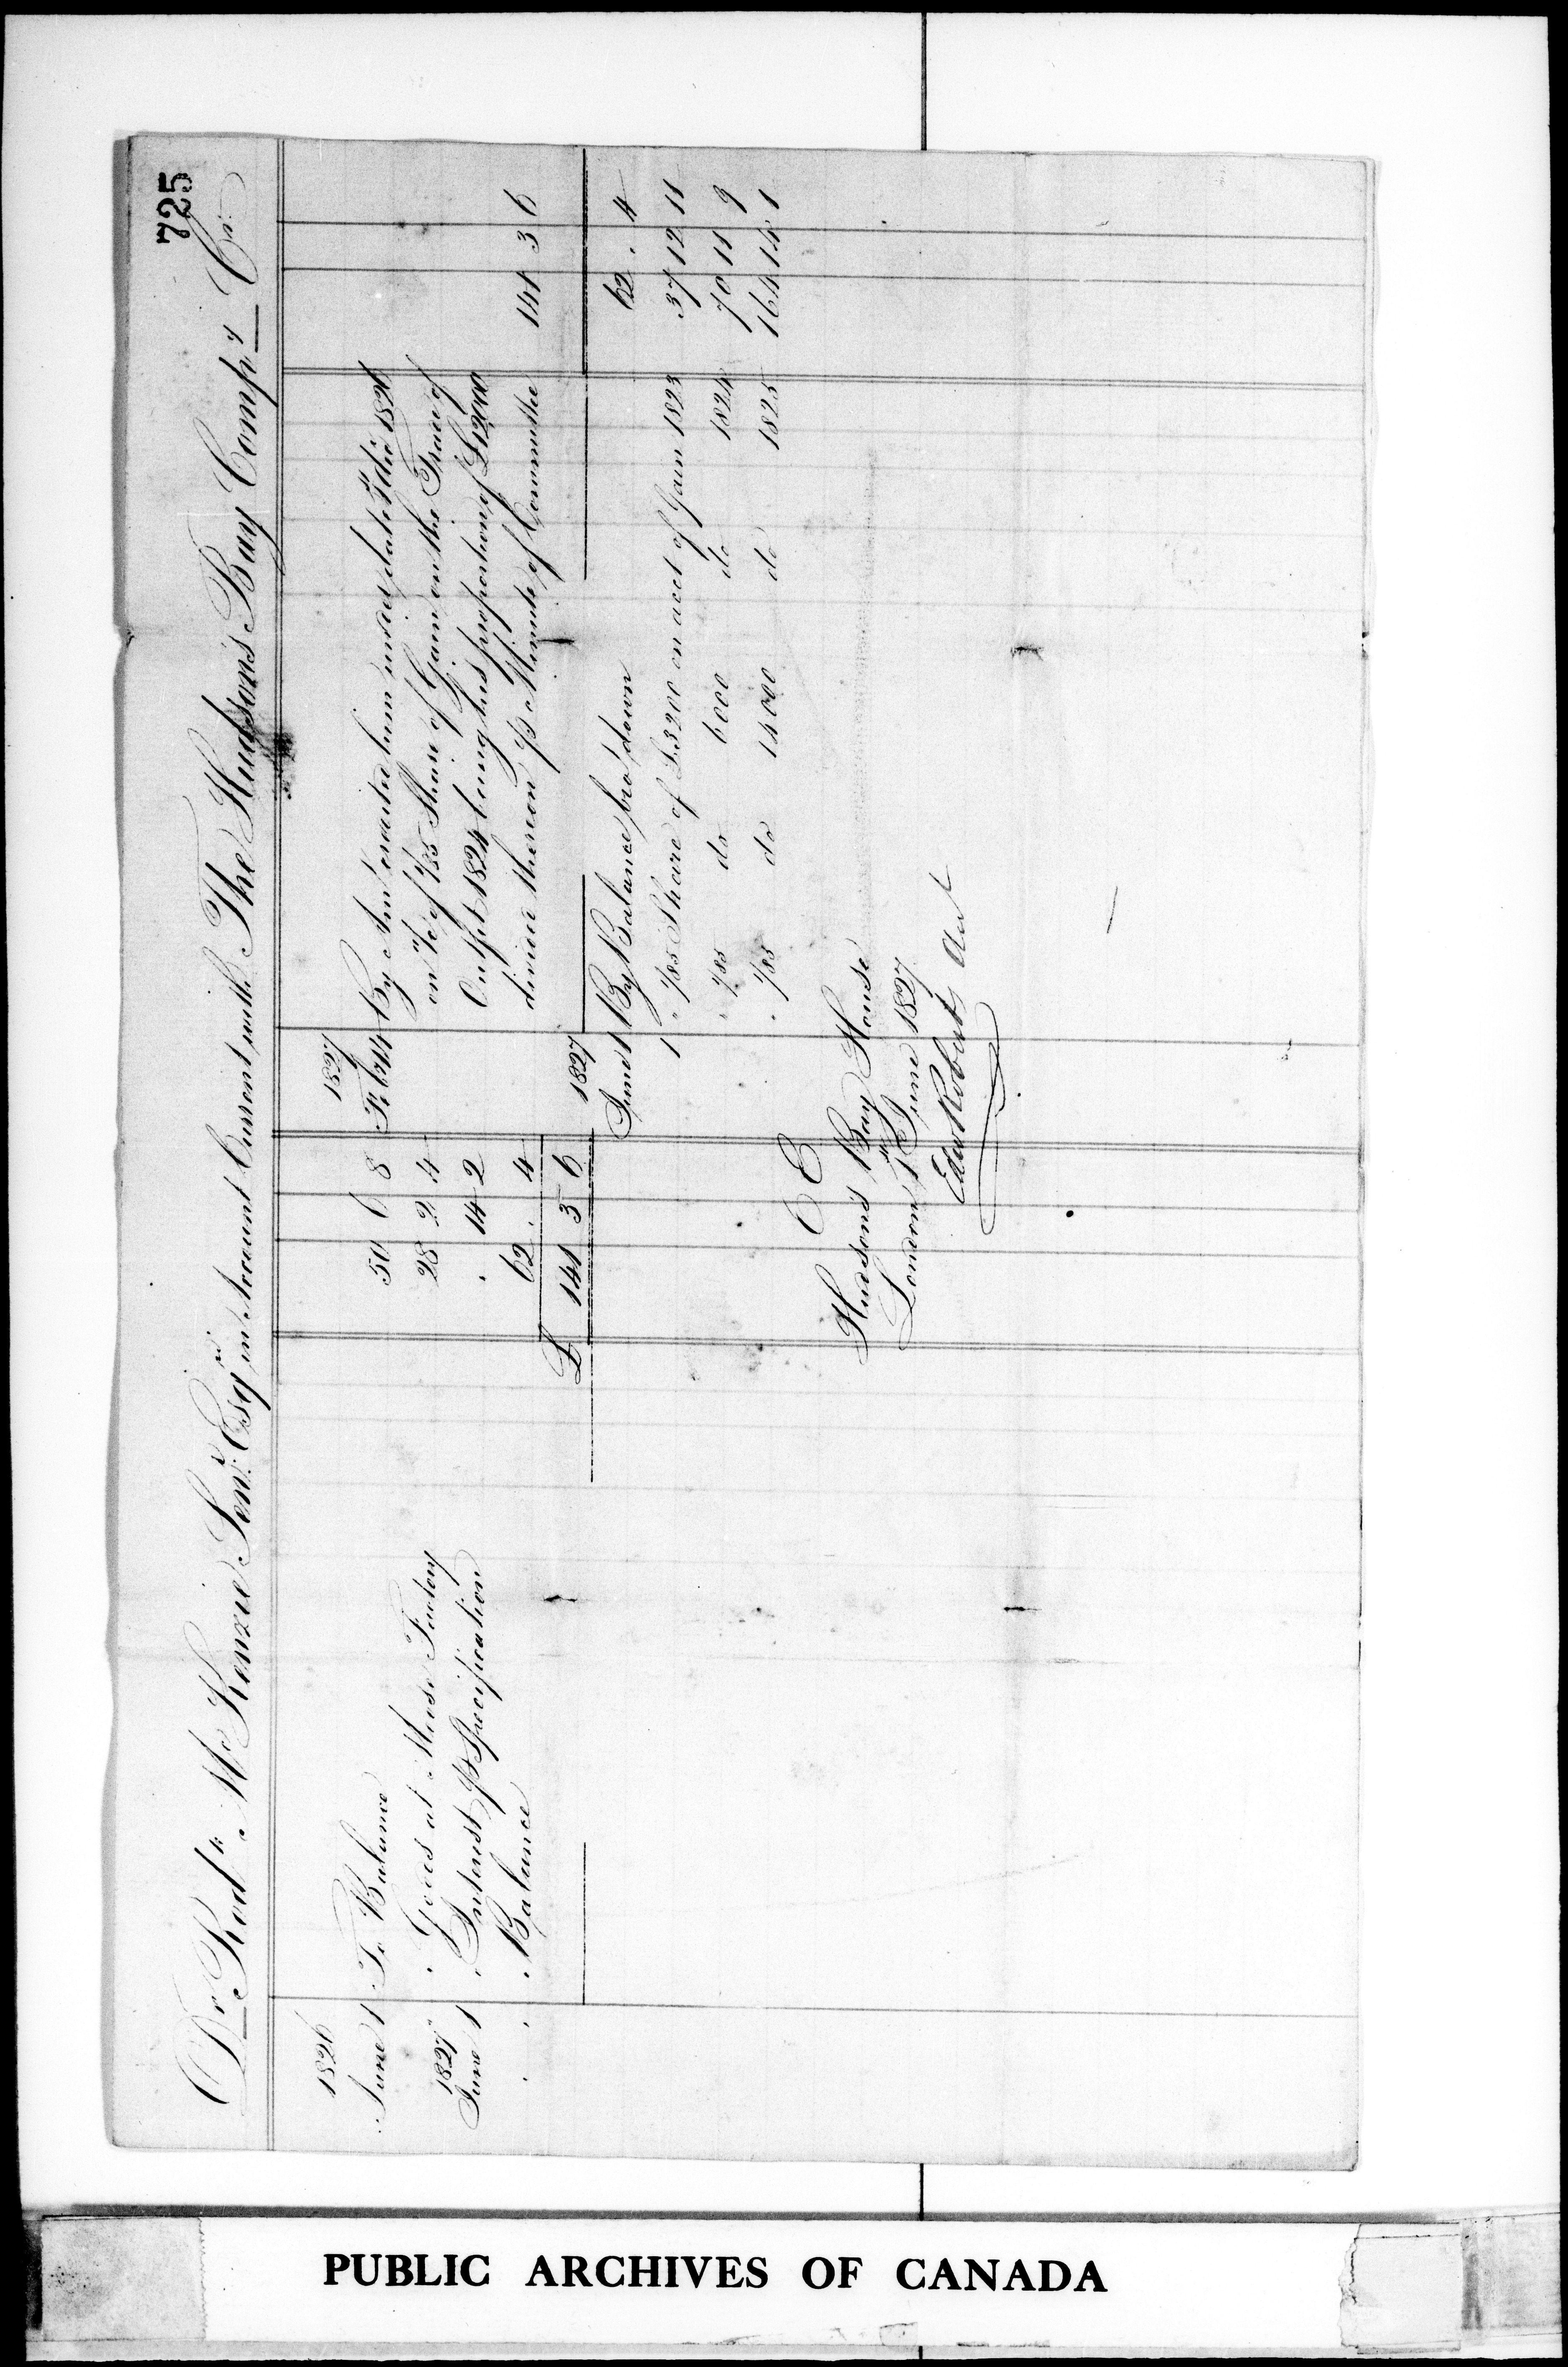 725
Dr. Rodk. McKenzie Senr. Esqre. in Account Current with The Hudson's Bay Compy. Cr.
1826
June 1 To Balance 50 6 8
" Goods at Moose Factory 28 2 4
1827
June 1 " Interest p Specification " 14 2
" " Balance 62 " 4
£ 141 3 6
1827
Feby 14 By Amt credited him under date 1826
on 1/85 Share of Gain on the Trade of
Outfit 1824 being his proportion of £12000
divided thereon p Minute of Committee 141 3 6
1827
June 1 By Balance bro' down 62 " 4
1 " 1/85 Share of £3200 on acct of Gain 1823 37 12 11
" 1/85 do 6000 do 1824 70 11 9
" 1/85 do 14000 do 1825 164 14 1
E E
Hudson's Bay House
London 1 June 1827
Edw Roberts Act
PUBLIC ARCHIVES OF CANADA